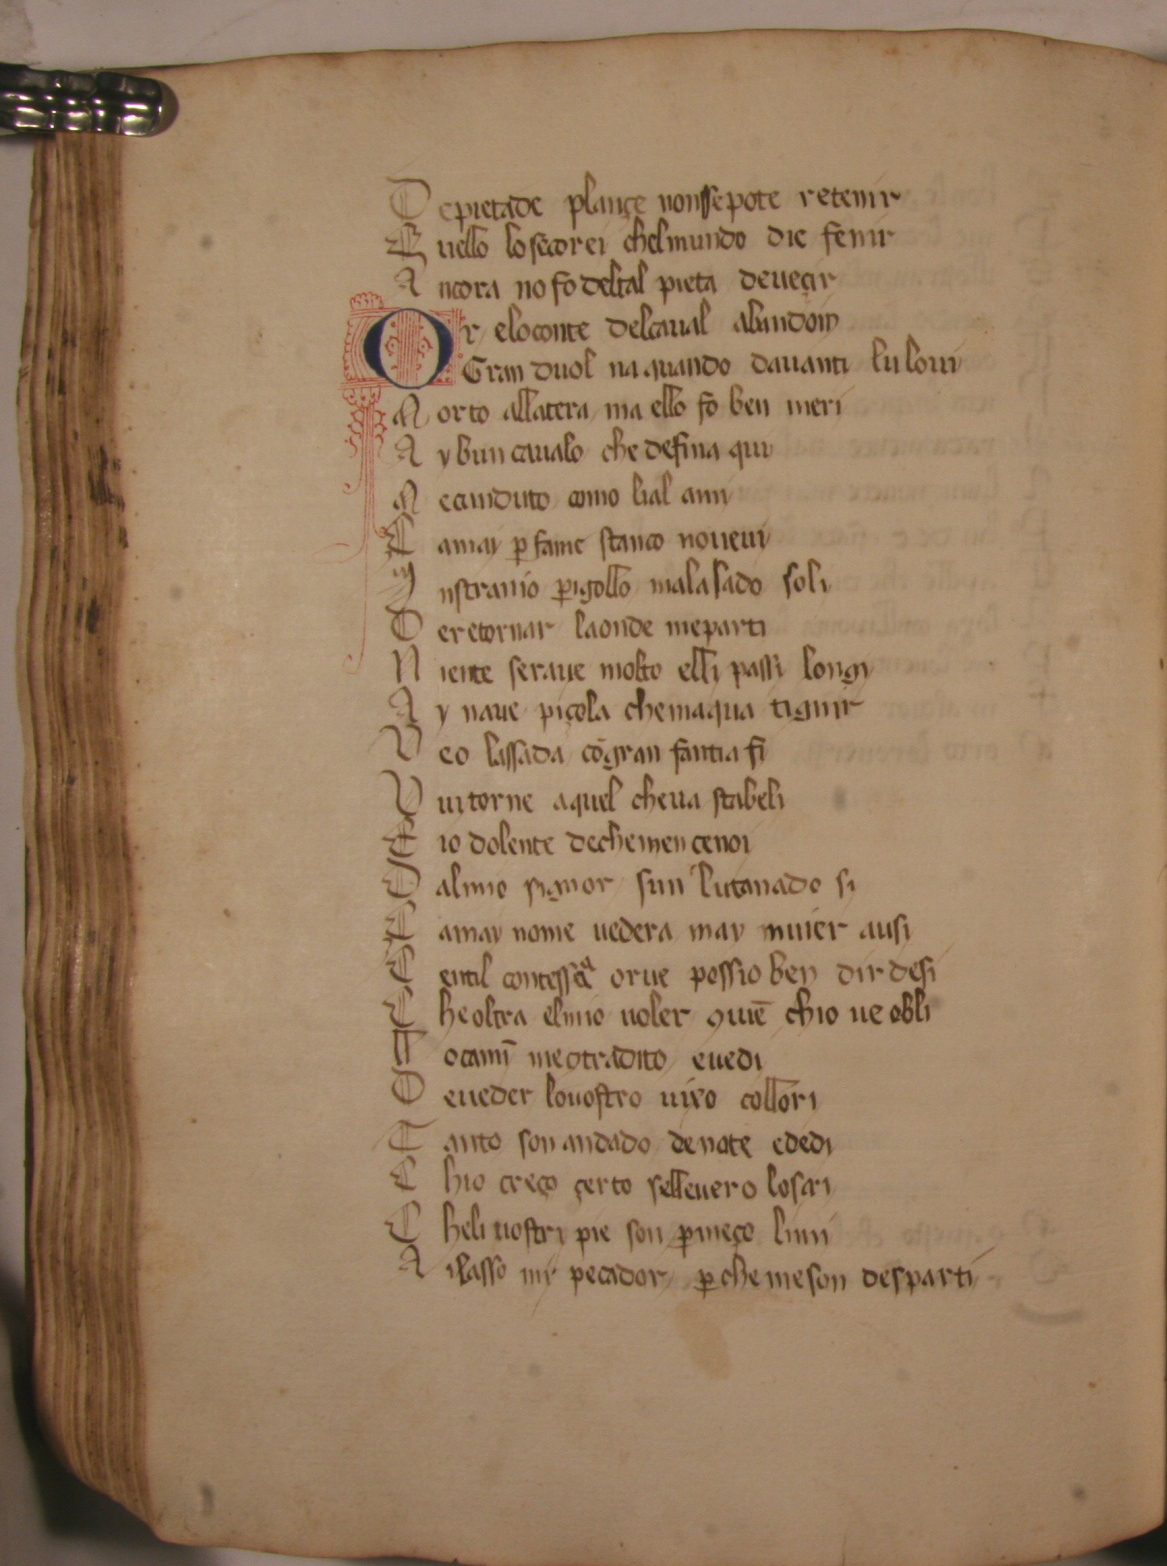 D epietade plançe nonssepote retenir
E uello losecorei chelmundo die fenir
A ncora no fo deltal pieta deueçir
O r eloconte delcaual abandoin
Gran duol na quando dauanti lulour
M orto allatera ma ello fo ben meri
A y bun caualo che defina qui
M econduto como lial ami
C amay p fame stanco no
I nstranio pigollo malasado soli
D eretornar laonde meparti
N iente seraue molto elli passi longi
A y naue piçola chemaqua tignir
V eo lassada cõgran fantia fi
V uitorne aquel cheua stabeli
E io dolente dechemencenoi
D almio signor sun lutanado si
C amay nome uedera may muier ausi
G entil contessa orue possio ben dir desi
C he oltra elmio uoler chio ue obli
M ocamī meotradito euedi
D eueder louostro uixo collori
T anto son andado denote ededi
C hio creço çerto selleuero losai
C heli uostri pie son pmeço limi
A ilasso mi pecador pchemeson desparti